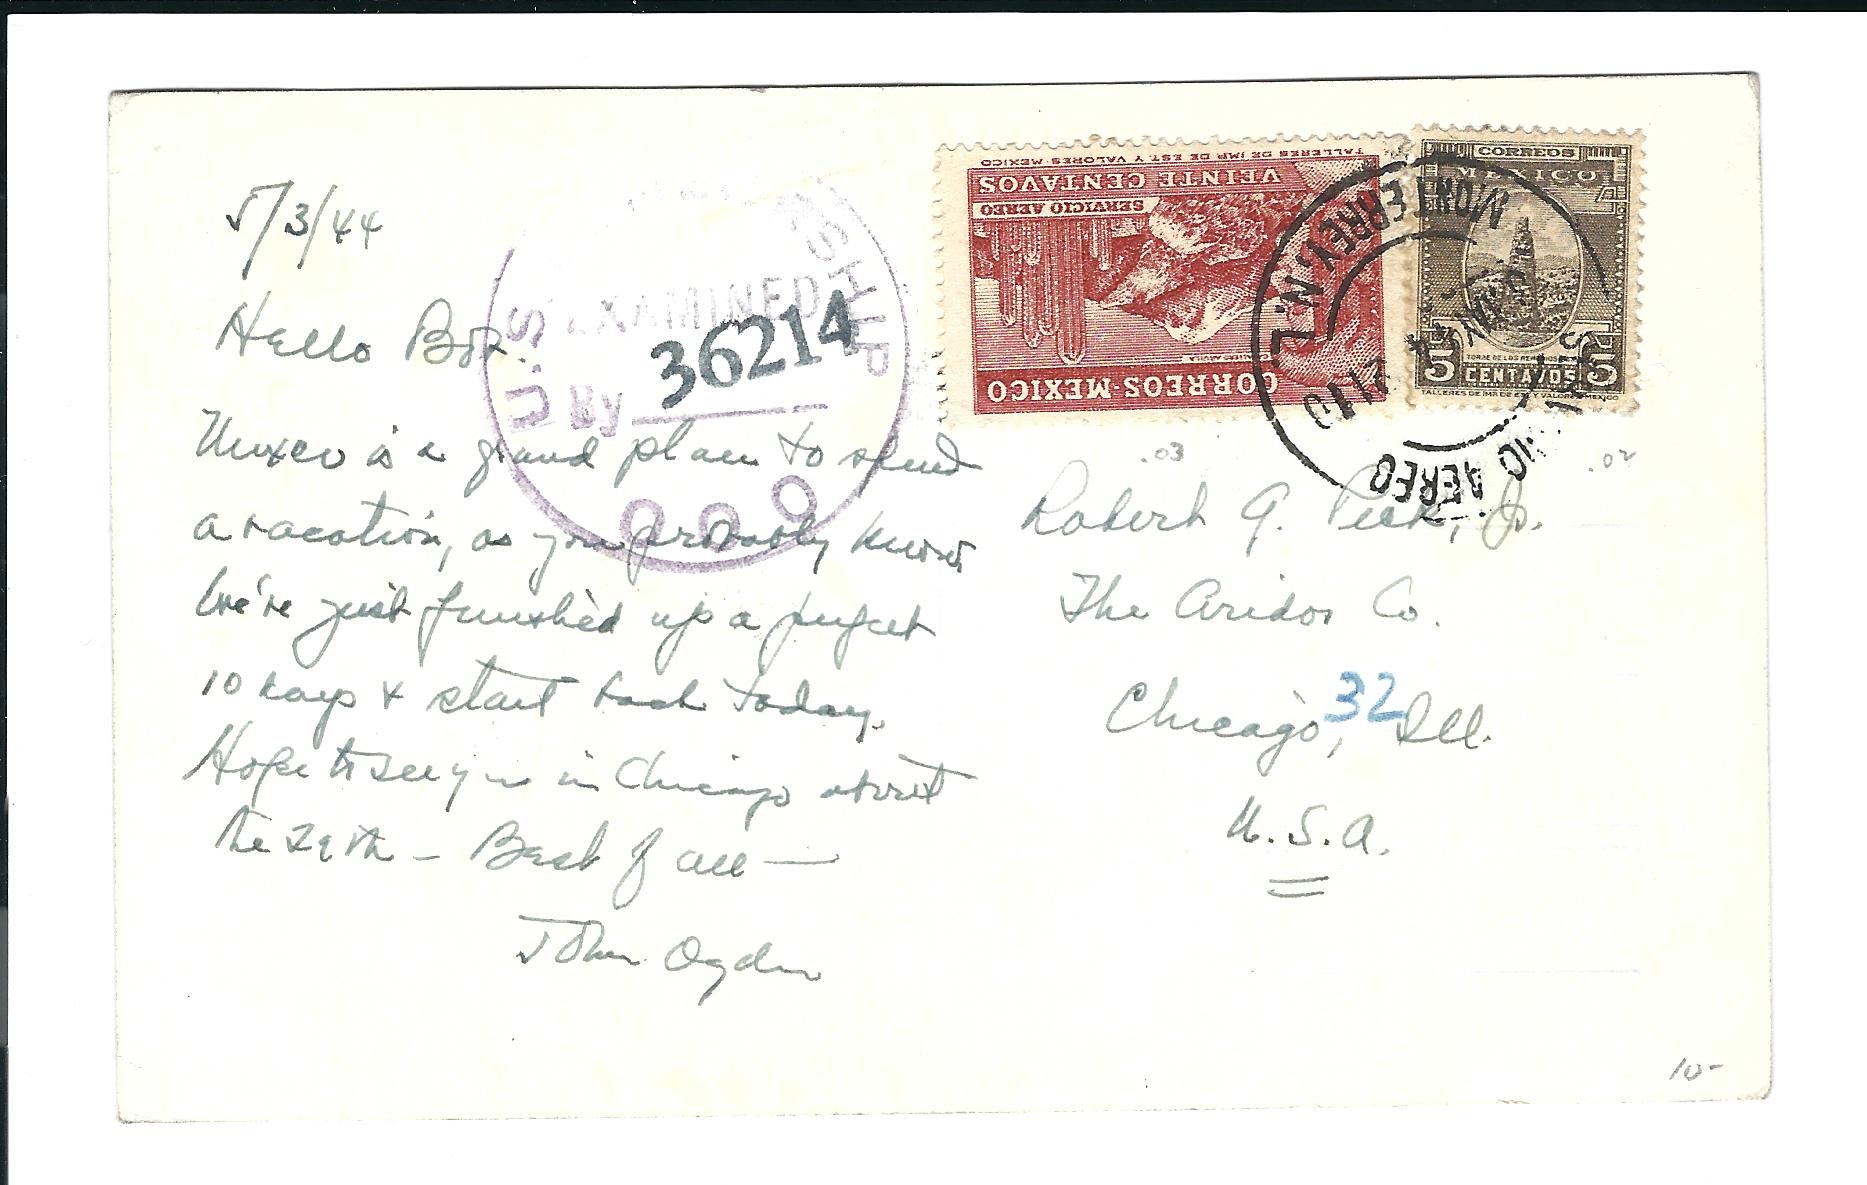 5/3/44
Hello Bob.
Mexico is a grand place to spend
a vacation, as you probably know.
We're just finished up a perfect
10 days & start back today.
Hope to see you in Chicago about
the 29th – Best of all —
John Ogden
U.S. CENSORSHIP
EXAMINED
By 36214
TALLERES DE IMP. DE EST. Y VALORES-MEXICO
VEINTE CENTAVOS
SERVICIO AEREO
CORREOS-MEXICO
CORREOS
MEXICO
5 5
TORRE DE LOS REMEDIOS
CENTAVOS
TALLERES DE IMP. DE EST. Y VALORES-MEXICO
MONTERREY, N.L.
SERVICIO AEREO
.03
.02
Robert G. Peck, Jr.
The Aridor Co.
Chicago, 32 Ill.
U.S.A.
10-